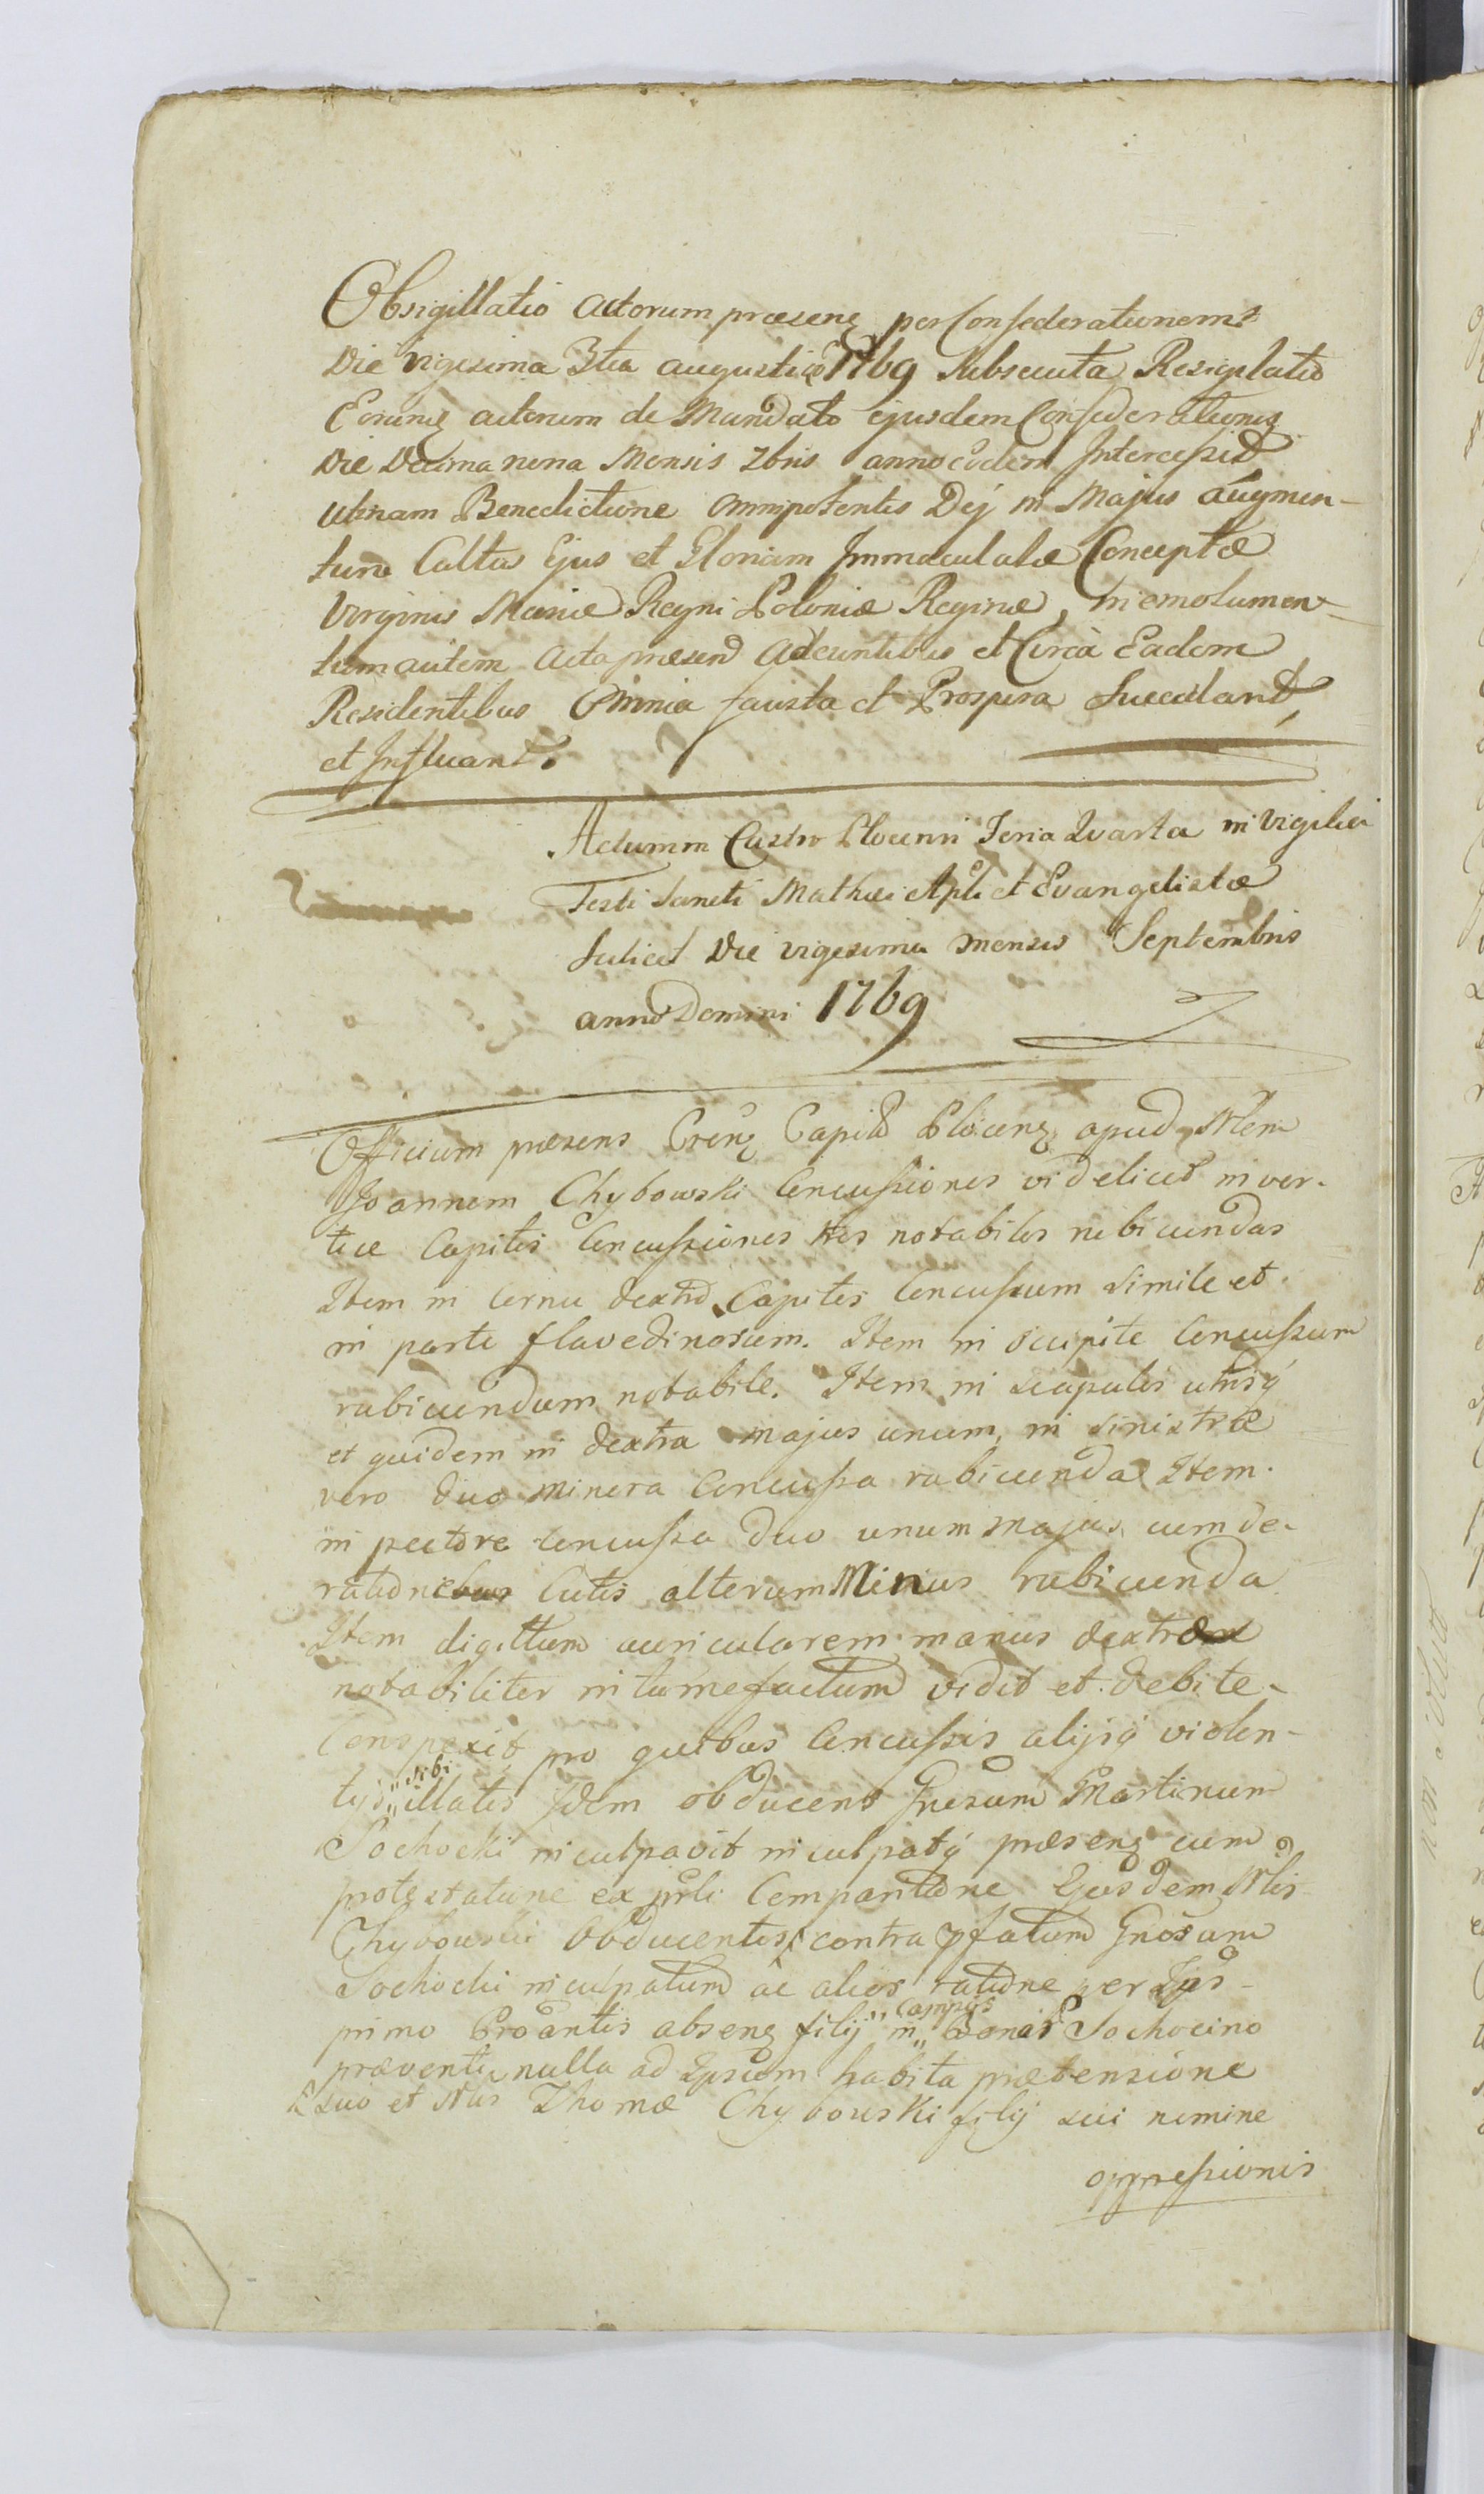 Obsigillatio actorum præsenz per Confederationem
Die vigesima 3tia augusti 1769 Subsecuta Resigilatio
Eorunz actorum de Mandato ejusdem Confederationis
Die Decima nona Mensis 7bris anno eodem Intercessit
Utinam Benedictione Omnipotentis Dej in Majus augmen-
tum Cultus Ejus et Gloriam Immaculatæ Conceptæ
Virginis Mariæ Regni Poloniæ Reginæ, in emolumen-
tum autem acta præsen adeuntibus et Circa Eadem
Residentibus Omnia fausta et Prospera Succedant
et Influant.
Actum in Castro Plocensi Feria Quarta in Vigilia
Festi Sancti Mathæi Apli et Evangelistæ
Scilicet Die vigesima mensis Septembris
anno Domini 1769
Officium præsens Crenz Capit Plocenz apud Nlem
Joannem Chybowski Concussiones videlicet in ver-
tice Capitis Concussiones tres notabiles rubicundas
Item in cornu dextro Capitis Concussum simile et
in parte flavedinosum. Item in occipite Concussum
rubicundum notabile. Item in scapulis utrisq
et quidem in dextra majus unum, in sinistra
vero duo minora Concussa rubicunda Item
in pectore concussa duo unum majus cum de-
Cutis alterum Minus rubicunda
Item digittum auricularem manus dextræ
notabiliter intumefactum vidit et debite
Conspexit pro quibus Concussis alijsq violen-
tijs "sibi" illatis Idem obducens Gnesum Martinum
Sochocki inculpavit inculpatq præsenz cum
protestatione ex prli Comparitione Ejusdem Nlis
Chybowski Obducentis contra pfatum Gnosum
Sochocki inculpatum ac alios ratione per Ips-
primo Proantis absenz filij in "Campis" Bonor Sochocino
præventi nulla ad Ipsum habita prætensione
suo et Nlis Thomæ Chybowski filij sui nomine
oppressionis